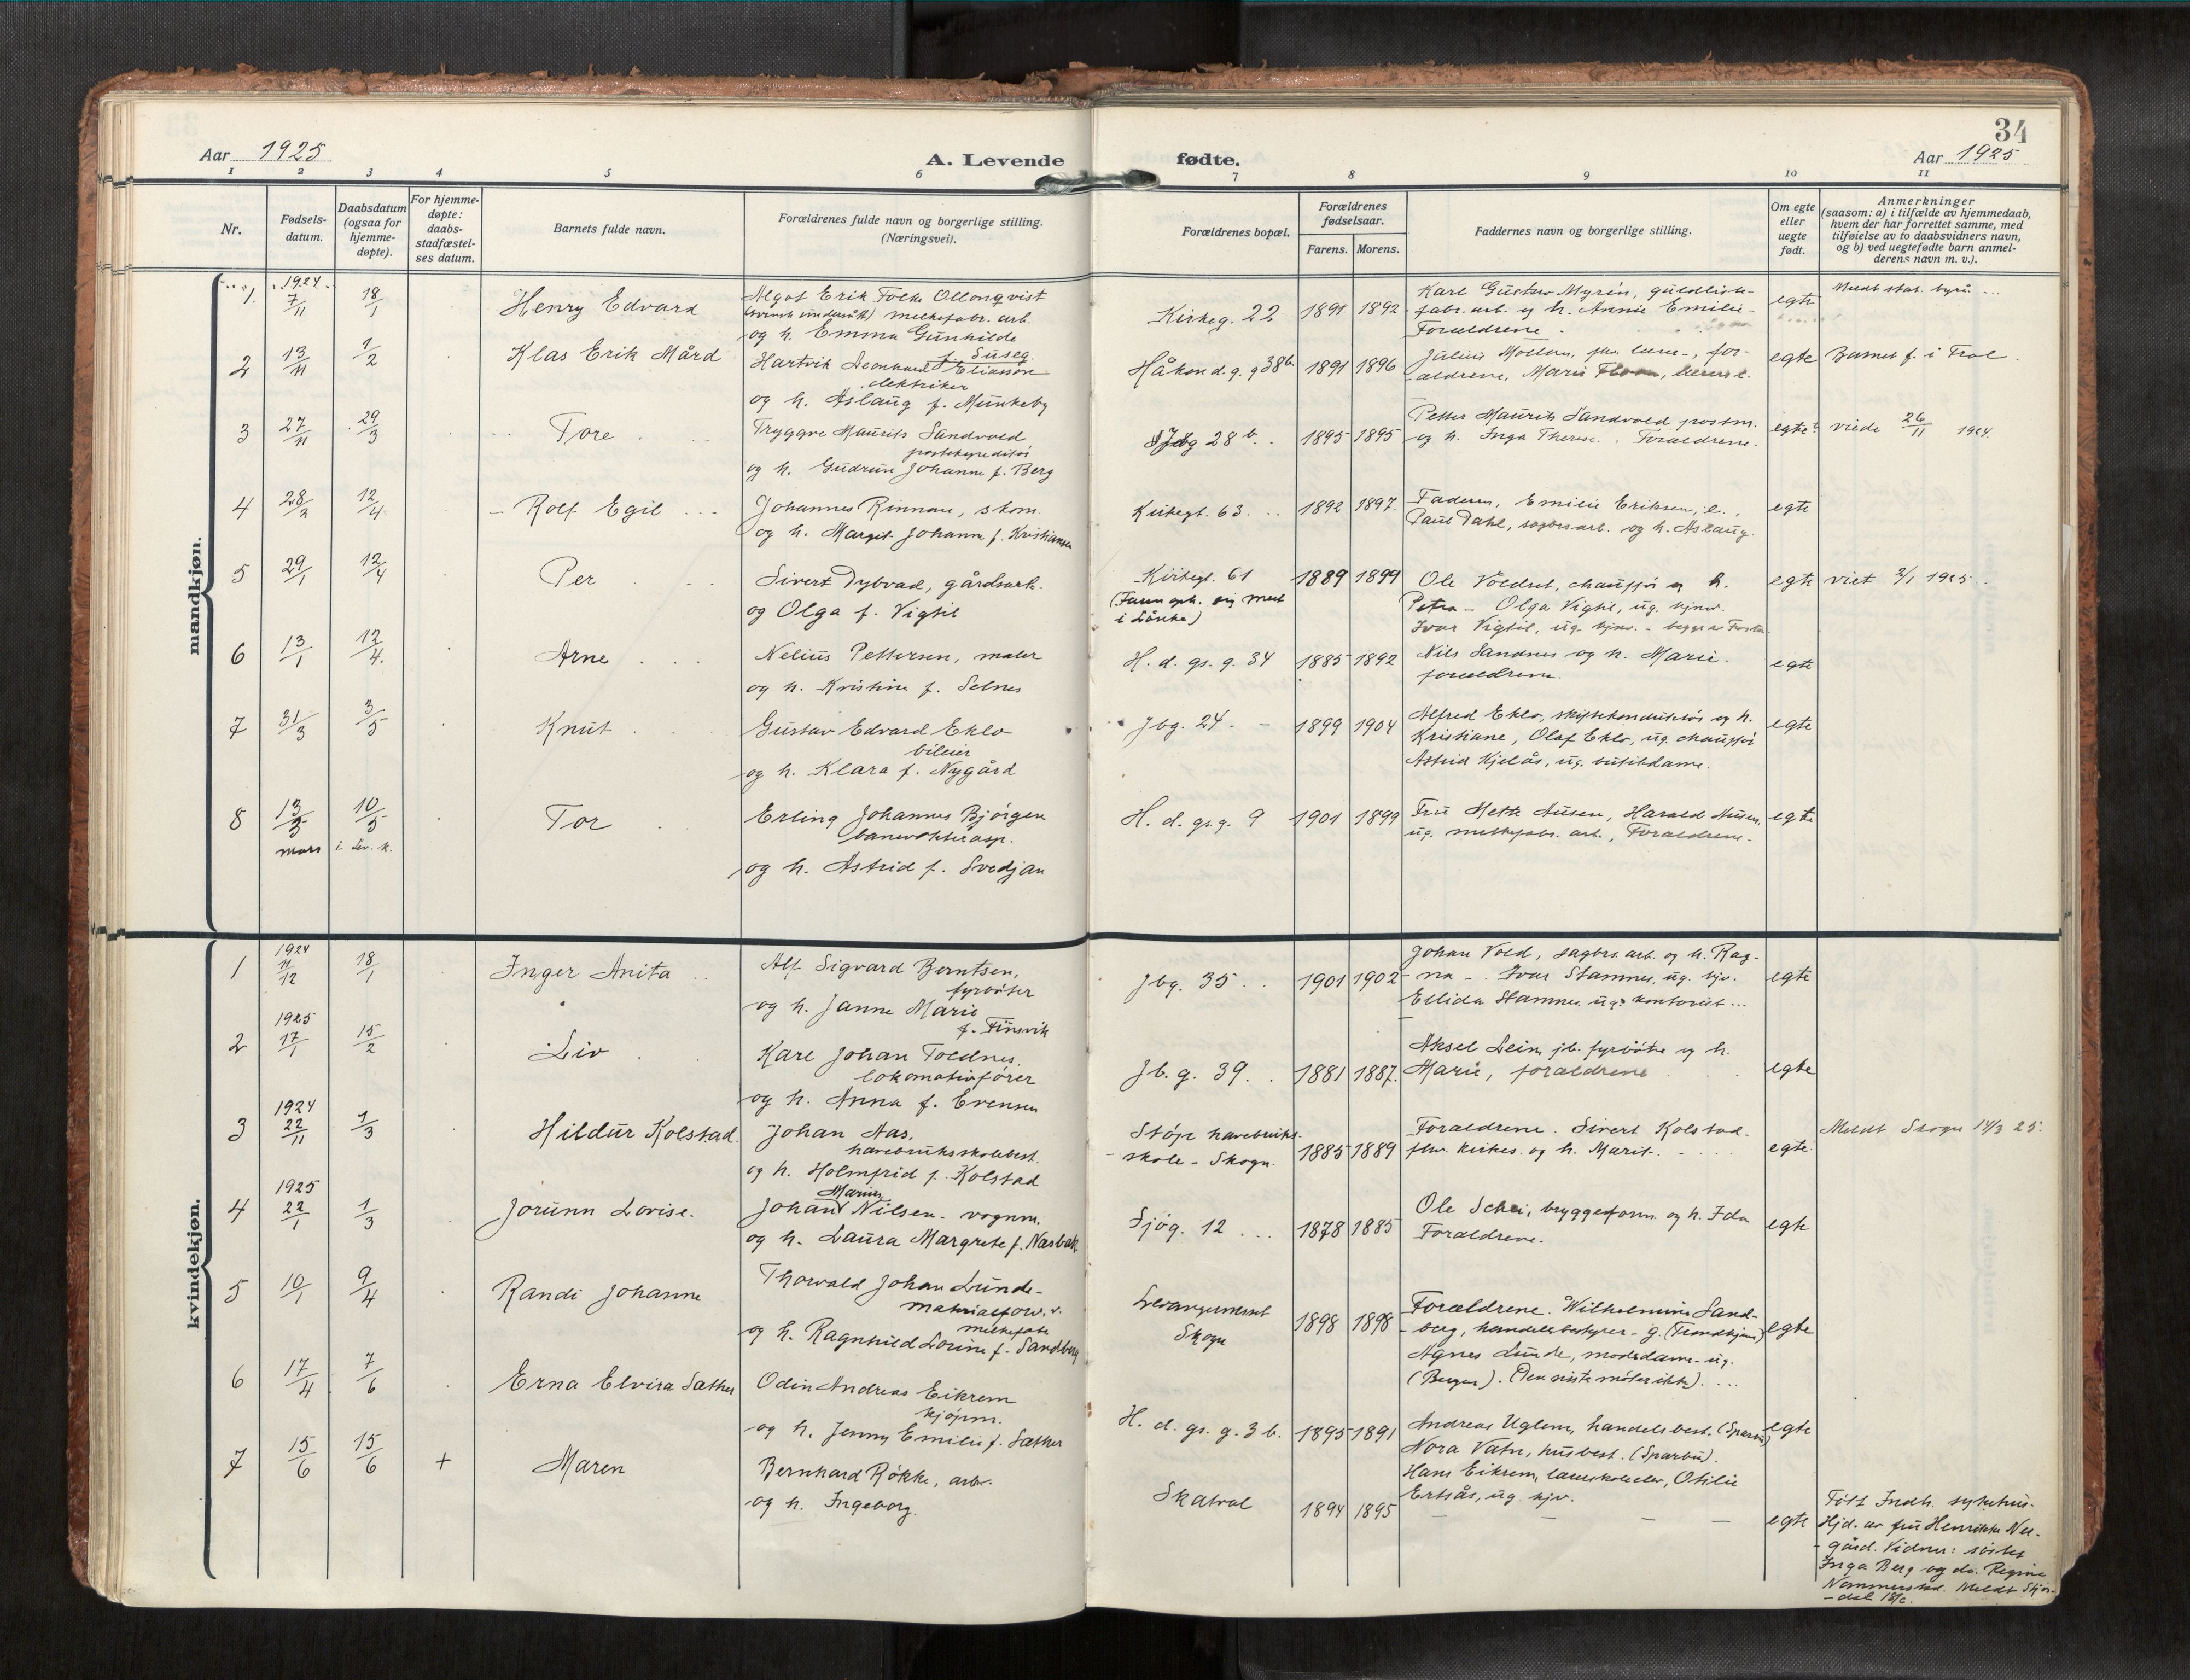 34
Aar 1925
A. Levende
fødte.
Aar 1925
1 2 3 4 5 6 7 8 9 10 11
Nr.
Fødsels-
datum.
Daabsdatum
(ogsaa for
hjemme-
døpte).
For hjemme-
døpte:
daabs-
stadfæstel-
ses datum.
Barnets fulde navn.
Forældrenes fulde navn og borgerlige stilling.
(Næringsvei).
Forældrenes bopæl.
Forældrenes
fødselsaar.
Farens. Morens.
Faddernes navn og borgerlige stilling.
Om egte
eller
uegte
født.
Anmerkninger
(saasom: a) i tilfælde av hjemmedaab,
hvem der har forrettet samme, med
tilføielse av to daabsvidners navn,
og b) ved uegtefødte barn anmel-
derens navn m. v.).
mandkjøn.
1 1924 7/11 18/1 Henry Edvard
Algot Erik Folke Ollonqvist
melkefabr. arb.
og h. Emma Gunhilde
f. Suseg
Kirkeg. 22 1891 1892
Karl Gustav Myrén, guldliste-
fabr. arb. og h. Annie Emilie-
Forældrene.
egte
Meldt stat. byrå
2 13/11 1/2 Klas Erik Mård
Hartvik Leonhard Eliasson
elektriker
og h. Aslaug f. Munkeby
Håkon d. g. g 38b. 1891 1896
Julius Moen, lærer, for-
ældrene, Marie
egte
Barnet f. i Frol.
3 27/11 29/3 Tore
Tryggve Maurits Sandvold
postekspeditør
og h. Gudrun Johanne f. Berg
28 b. 1895 1895
Petter Maurits Sandvold postm.
og h. Inga Therese. Forældrene.
egte
viede 26/11 1924.
4 28/2 12/4 Rolf Egil
Johannes Rinnan, skom.
og h. Margit Johanne f. Kristiansen
Kirkegt. 63. 1892 1897.
Faderen, Emilie Eriksen, e.,
Paul Dahl, sagbrsarb. og h. Aslaug.
egte
5 29/1 12/4 Per
Sivert Dybvad, gårdsarb.
og Olga f. Vigtil
Kirkegt. 61
(Faren oph. sig mest
i Lånke)
1889 1899
Ole Voldset, chauffør og h.
Petra - Olga Vigtil, ug. hjmv.
Ivar Vigtil, ug. hjmv. - begge a Frosta
egte
viet 3/1 1925.
6 13/1 12/4. Arne
Nelius Pettersen, maler
og h. Kristine f. Selnes
H. d. gs. g. 34 1885 1892
Nils Sandnes og h. Marie.
forældrene.
egte
7 31/3 3/5 Knut
Gustav Edvard Eklo
bileier
og h. Klara f. Nygård
Jbg. 24. 1899 1904
Alfred Eklo, skiftekonduktør og h.
Kristiane, Olaf Eklo, ug. chauffør
Astrid Hjelås, ug. butikdame.
egte
8 13/3 10/5 Tor
mars i Lev. k.
Erling Johannes Bjørgen
banevokterasp.
og h. Astrid f. Svedjan
H. d. gs. g. 9 1901 1899
Fru Meth Ausen, Harald Ausen,
ug. melkefabr. arb., Forældrene.
egte
kvindekjøn.
1 1924 11/12 18/1 Inger Anita
Alf Sigvard Berntsen,
fyrbøter
og h. Janne Marie
f. Finsvik
Jbg. 35 1901 1902
Johan Vold, sagbrs. arb. og h. Rag-
na - Ivar Stamnes, ug. hjv.
Ellida Stamnes, ug. kontorist
egte
2 1925 17/1 15/2 Liv
Karl Johan Toldnes,
lokomotivfører
og h. Anna f. Evensen
Jb. g. 39. 1881 1887.
Aksel Lein, jb. fyrbøter og h.
Marie, forældrene
egte
3 1924 22/11 1/3 Hildur Kolstad
Johan Aas,
havebruksskolebest.
og h. Holmfrid f. Kolstad
Støp havebruks-
skole - Skogn. 1885 1889
Forældrene. Sivert Kolstad
fhv. kirkes. og h. Marit.
egte.
Meldt Skogn 14/3 25.
4 1925 22/1 1/3 Jorunn Lovise.
Marius
Johan Nilsen. vognm.
og h. Laura Margrete f. Nasbak
Sjøg. 12 1878 1885
Ole Schei, bryggeform. og h. Ida
Forældrene.
egte
5 10/1 9/4 Randi Johanne
Thorvald Johan Lunde-
materialforv. v.
melkefabr.
og h. Ragnhild Lorine f. Sandberg
Levangernesset
Skogn
1898 1898
Forældrene. Wilhelmine Sand-
berg, handelsbestyrer - g. (Trondhjem)
Agnes Lunde, modedame - ug.
(Bergen). (Den siste møter ikke).
egte
6 17/4 7/6 Erna Elvira Sæther
Odin Andreas Eikrem
kjøpm.
og h. Jenny Emilie f. Sæther
H. d. gs. g. 3 b. 1895 1891
Andreas Uglem, handelsbest. (Sparbu)
Nora Vatn, husbest. (Sparbu).
Hans Eikrem, lærerskoleelev, Otilie
Ertsås, ug. hjv.
egte
7 15/6 15/6 + Maren
Bernhard Røkke, arb.
og h. Ingeborg.
Skatval 1894 1895
egte
Født Indh. sykehus.
Hjd. av fru Henrikke Nei-
gård. Vidner: søster
Inga Berg og do. Regine
Nommerstad. Meldt Stjør-
dal 18/6.